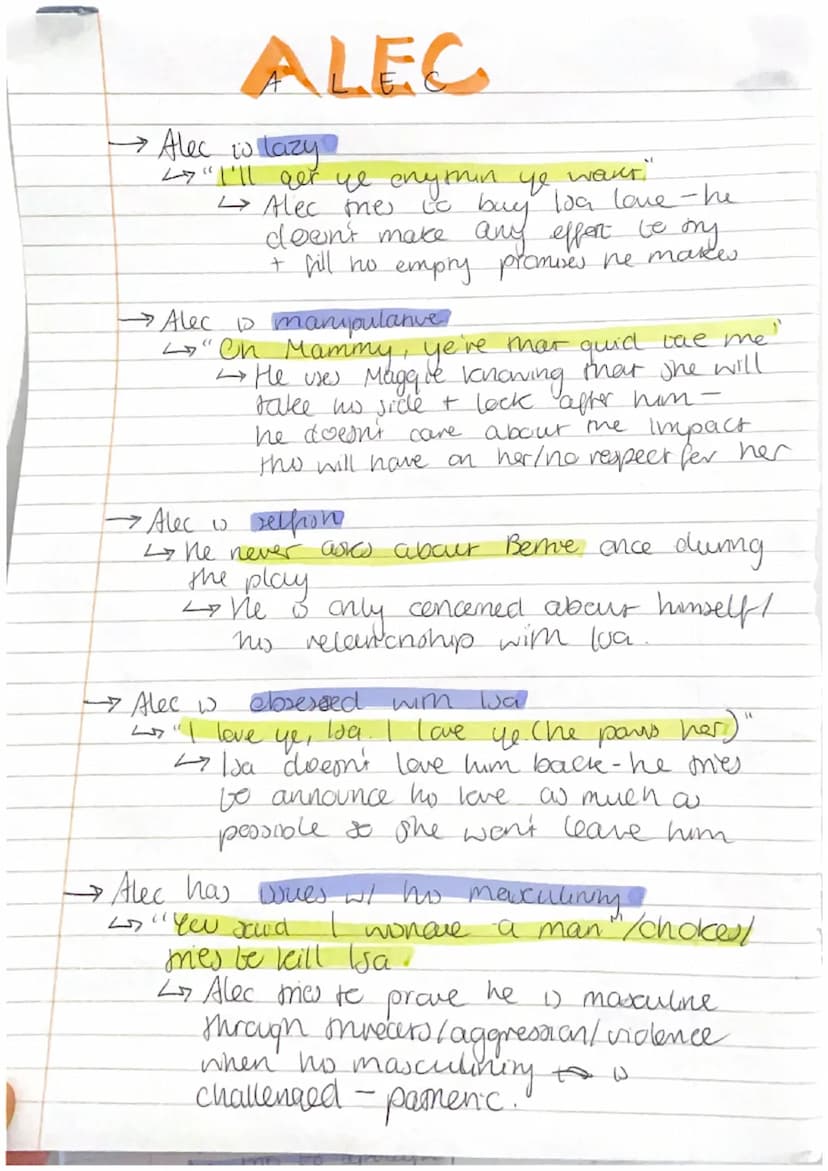 ALEC
A L E C
→ Alec is lazy
↳ "I'll get ye anythin ye want"
↳ Alec tries to buy Isa love - he
doesn't make any effort to try
+ fill his empty promises he makes
→ Alec is manipulative
↳ "Oh Mammy, ye're that guid tae me"
↳ He uses Maggie knowing that she will
take his side + look after him -
he doesn't care about the impact
this will have on her/no respect for her
→ Alec is selfish
↳ He never asks about Bertie once during
the play
↳ He is only concerned about himself/
his relationship with Isa.
→ Alec is obsessed with Isa
↳ "I love ye, Isa. I love ye (he paws her)"
↳ Isa doesn't love him back - he tries
to announce his love as much as
possible so she won't leave him
→ Alec has issues w/ his masculinity
↳ "You said I wisnae a man"/chokes/
tries to kill Isa.
↳ Alec tries to prove he is masculine
through threats/aggression/violence
when his masculinity is
challenged - pathetic.